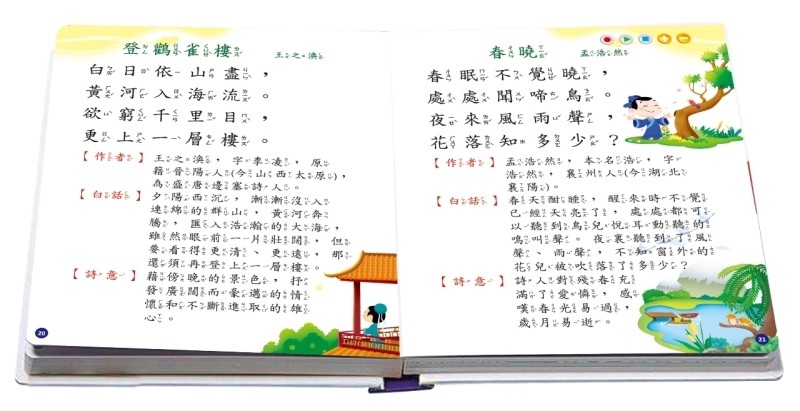 登鸛雀樓 王之渙
白日依山盡，
黃河入海流。
欲窮千里目，
更上一層樓。
【作者】王之渙，字季凌，原
籍晉陽人(今山西太原)，
為盛唐邊塞詩人。
【白話】夕陽西沉，漸漸沒入
連綿的群山，黃河奔
騰，匯入浩瀚的大海，
雖然眼前一片壯闊，但
要看得更清、更遠，那
還須再登上一層樓。
【詩意】藉傍晚的景色，抒
發廣闊而豪邁的情
懷和不斷進取的雄
心。
20
春曉 孟浩然
春眠不覺曉，
處處聞啼鳥。
夜來風雨聲，
花落知多少？
【作者】孟浩然，本名浩，字
浩然，襄州人(今湖北
襄陽)。
【白話】春天酣睡，醒來時不覺
已經天亮了，處處都可
以聽到鳥兒悅耳動聽的
鳴叫聲。夜裏聽到了風
聲、雨聲，不知窗外的
花兒被吹落了多少？
【詩意】詩人對殘春充
滿了愛憐，感
嘆春光易過，
歲月易逝。
21